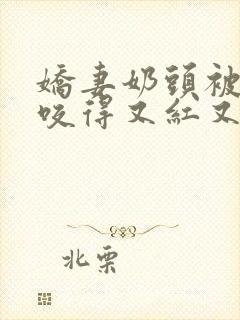 嬌妻奶頭被
咬得又紅又
北栗